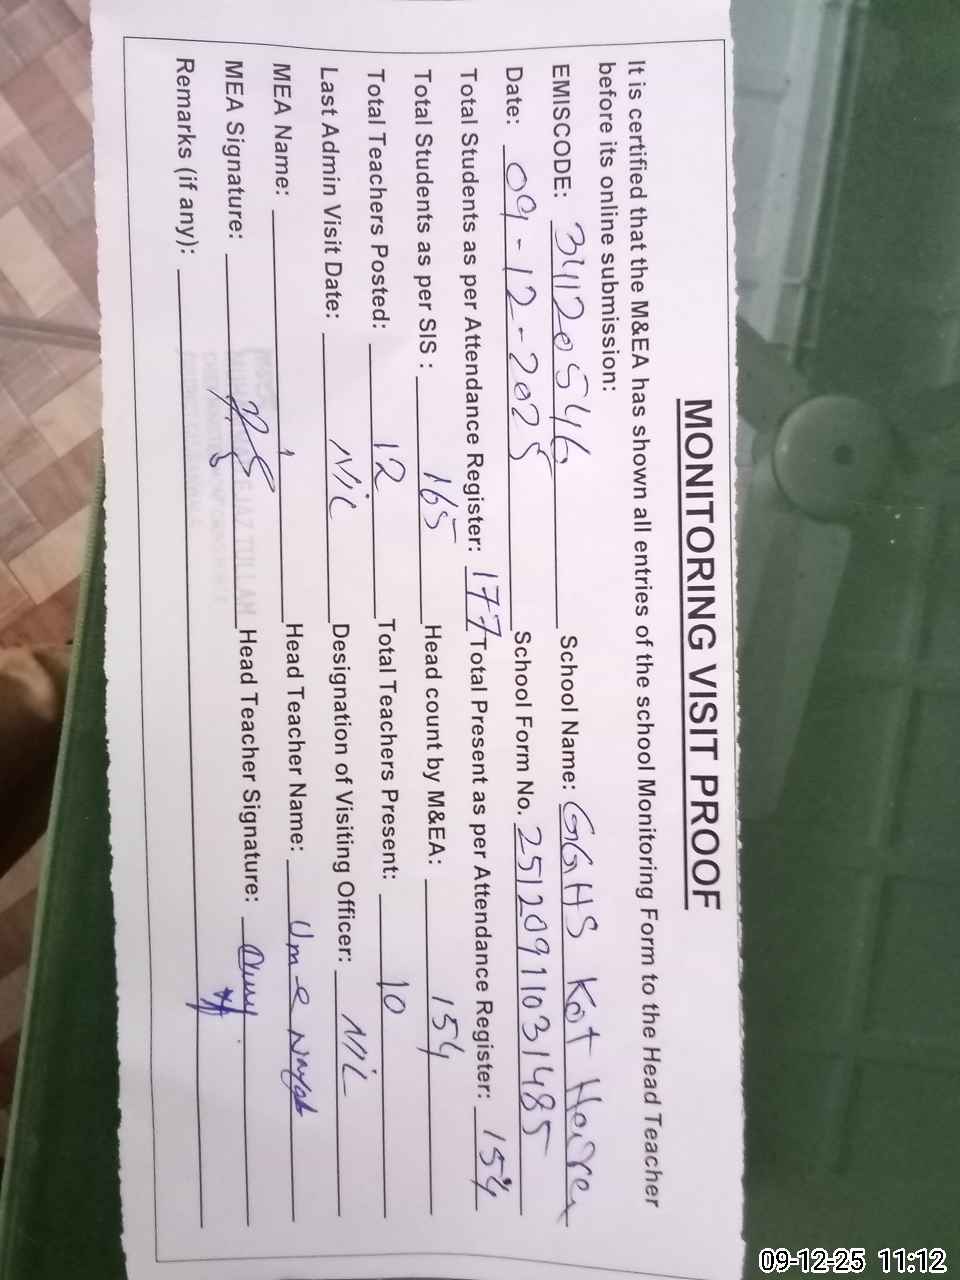 MONITORING VISIT PROOF
It is certified that the M&EA has shown all entries of the school Monitoring Form to the Head Teacher
before its online submission:
EMISCODE: 34120546 School Name: GGHS Kot
Date: 09-12-2025 School Form No. 25120911031485
Total Students as per Attendance Register: 177 Total Present as per Attendance Register: 154
Total Students as per SIS : 165 Head count by M&EA: 154
Total Teachers Posted: 12 Total Teachers Present: 10
Last Admin Visit Date: NIL Designation of Visiting Officer: NIL
MEA Name: Head Teacher Name: Ume
MEA Signature: Head Teacher Signature:
Remarks (if any):
09-12-25 11:12